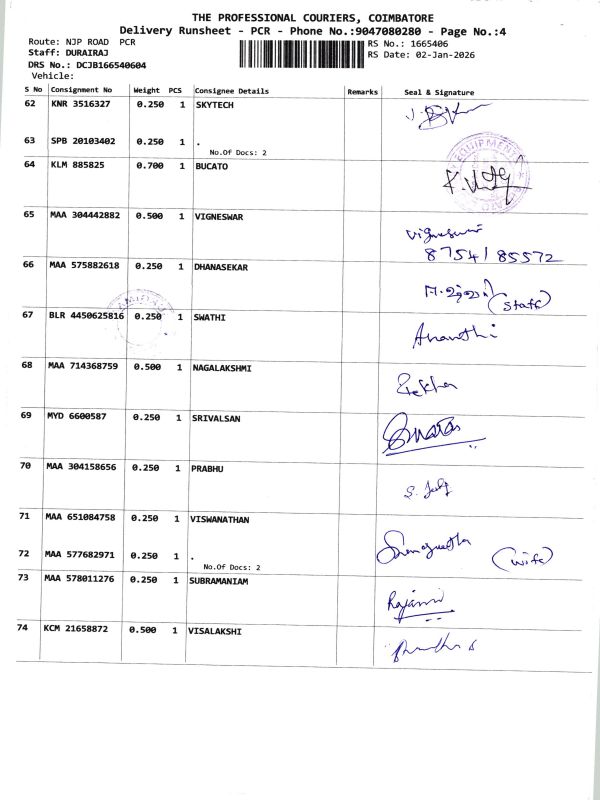 THE PROFESSIONAL COURIERS, COIMBATORE
Delivery Runsheet - PCR - Phone No.:9047080280 - Page No.:4
Route: NJP ROAD PCR
RS No.: 1665406
Staff: DURAIRAJ
RS Date: 02-Jan-2026
DRS No.: DCJB166540604
Vehicle:
S No Consignment No Weight PCS Consignee Details Remarks Seal & Signature
62 KNR 3516327 0.250 1 SKYTECH
63 SPB 20103402 0.250 1 .
No.Of Docs: 2
EQUIPMENT
64 KLM 885825 0.700 1 BUCATO
65 MAA 304442882 0.500 1 VIGNESWAR
8754185572
66 MAA 575882618 0.250 1 DHANASEKAR
(Staff)
67 BLR 4450625816 0.250 1 SWATHI
Ananthi
68 MAA 714368759 0.500 1 NAGALAKSHMI
Rekha
69 MYD 6600587 0.250 1 SRIVALSAN
70 MAA 304158656 0.250 1 PRABHU
71 MAA 651084758 0.250 1 VISWANATHAN
(wife)
72 MAA 577682971 0.250 1 .
No.Of Docs: 2
73 MAA 578011276 0.250 1 SUBRAMANIAM
74 KCM 21658872 0.500 1 VISALAKSHI